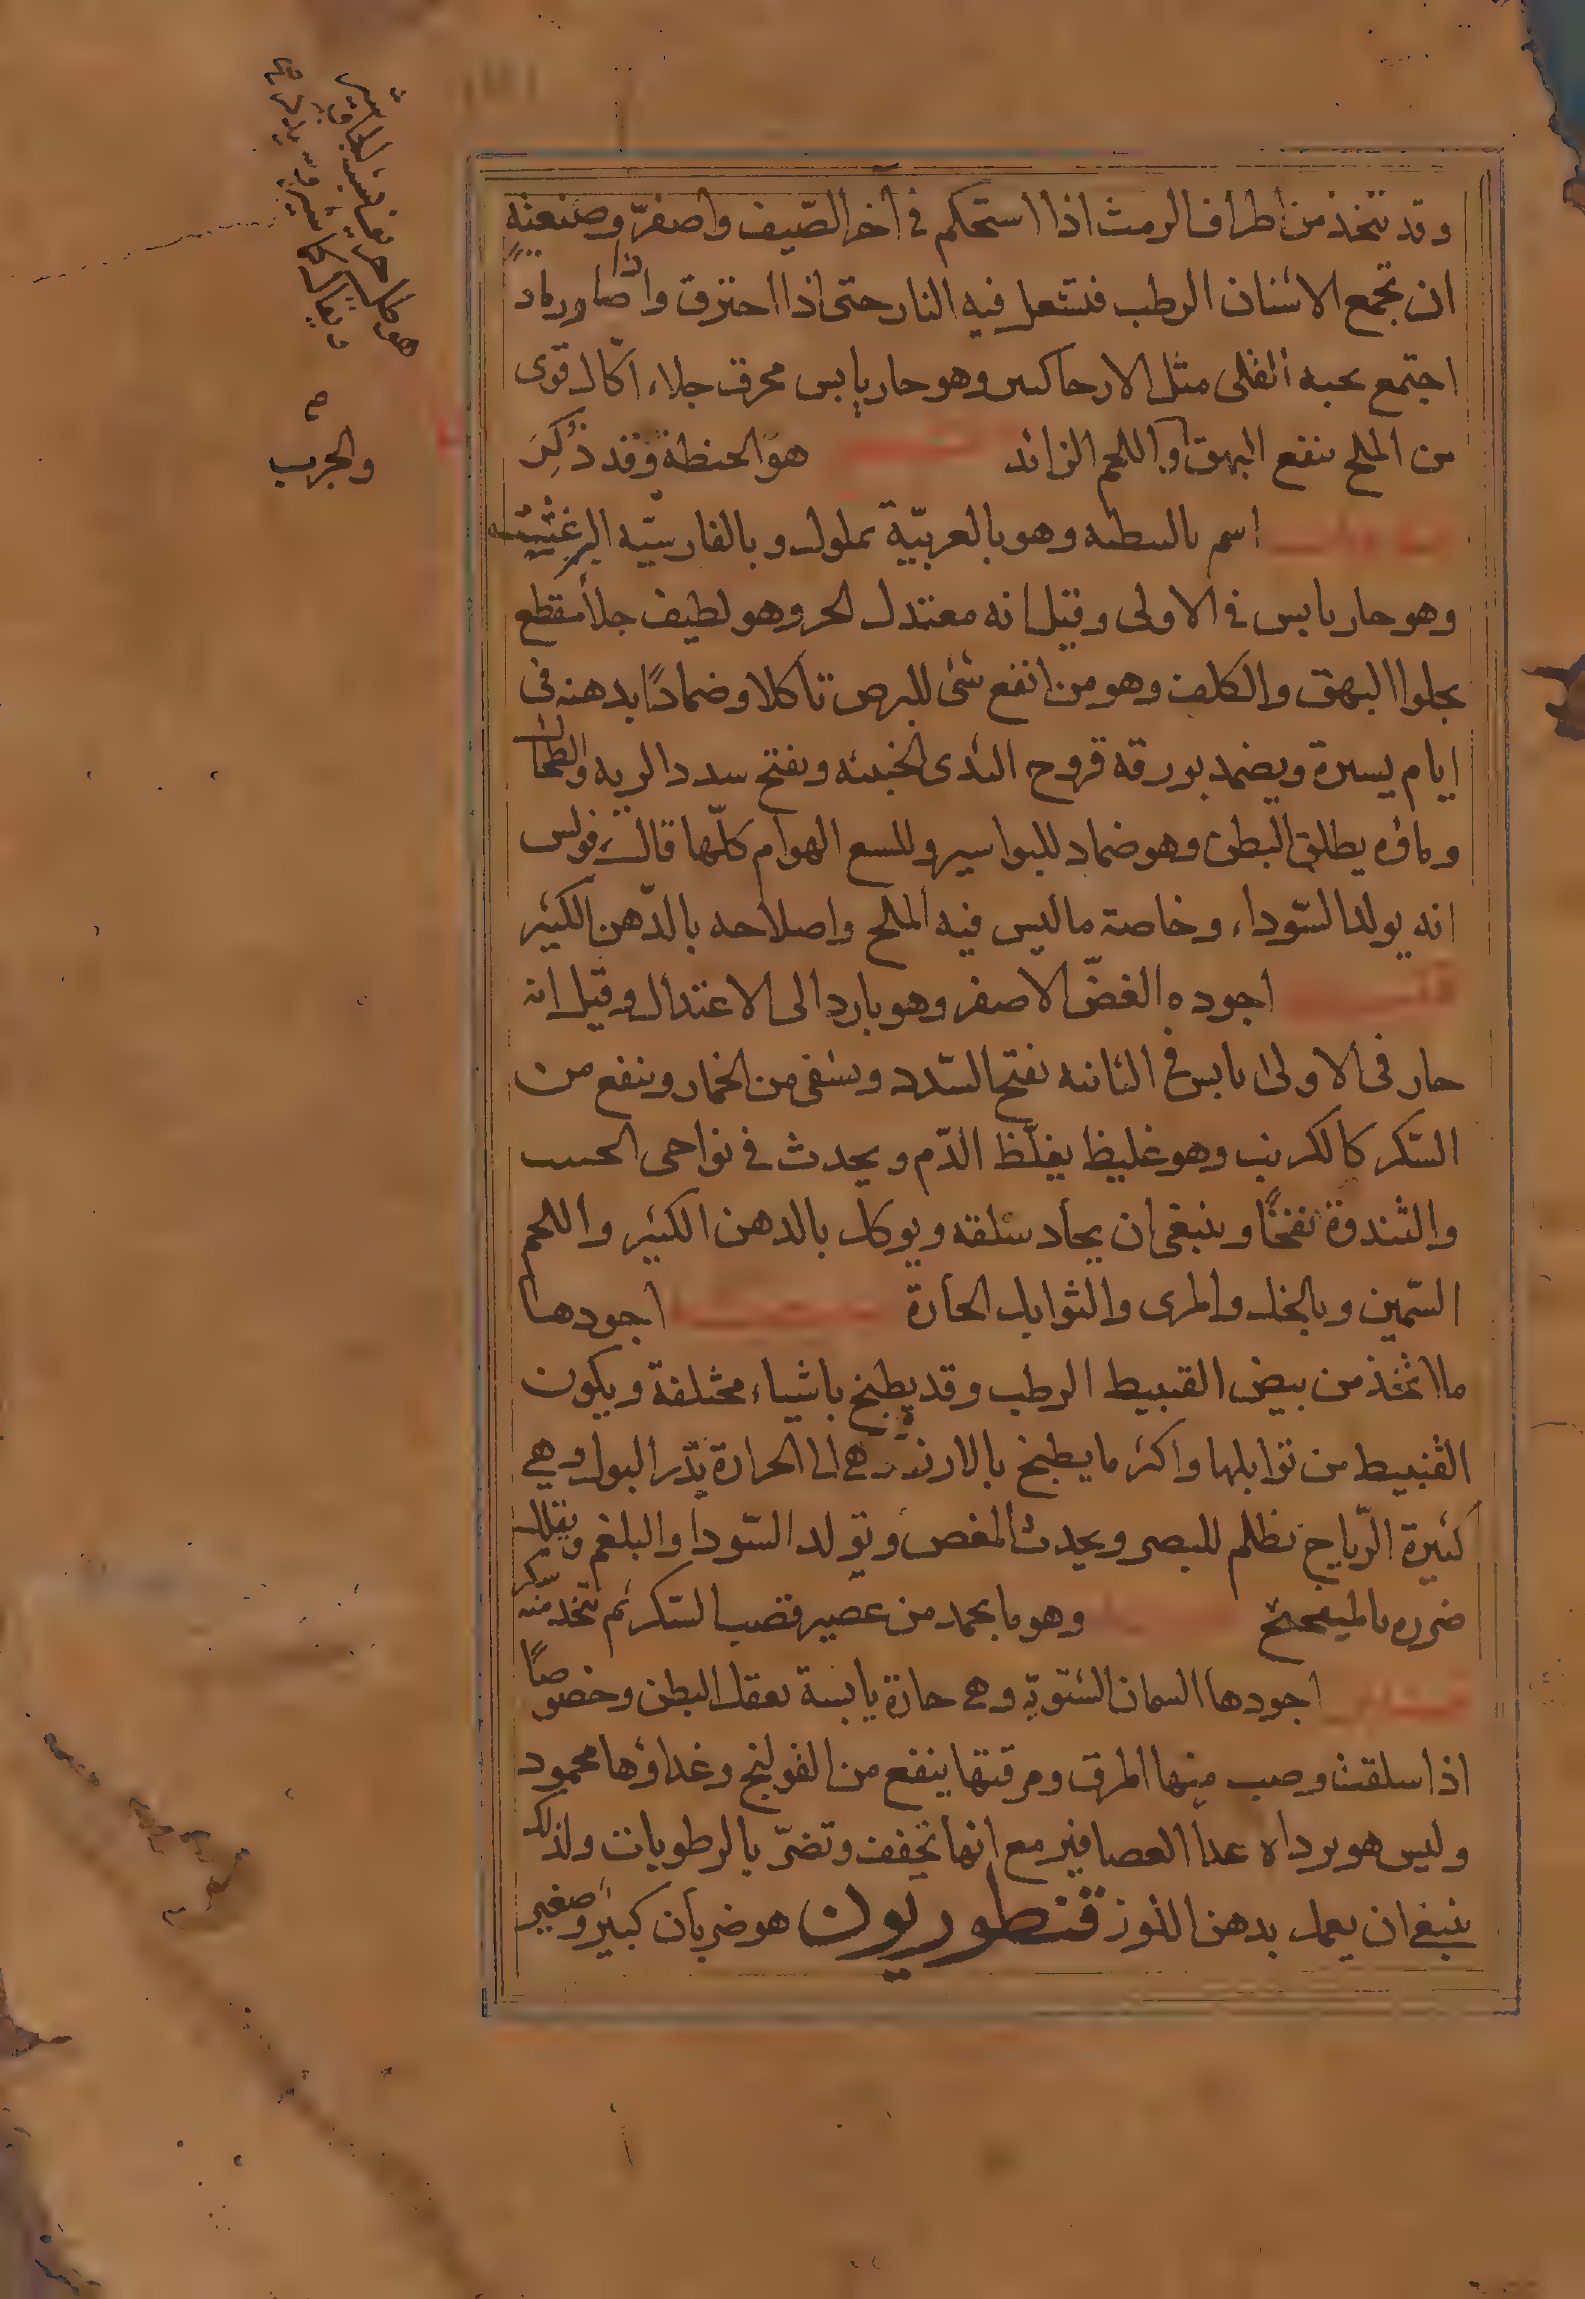 وقد تتخذ من اطراف الرمث اذا استحكم في آخر الصّيف واصفرّ وصنعته
ان تجمع الاشنان الرطب فتشعل فيه النار حتى اذا احترق واذا صار رماد
اجتمع تحته القلى مثل الارحا كبس وهو حار يابس محرق جلاء اكّال اقوى
من الملح ينفع البهق واللحم الزائد هو الحنطة وقد ذُكِرَ
اسم بالنبطيه وهو بالعربيّة تملول وبالفارسيّه البرغشت
وهو حار يابس في الاولى وقيل انه معتدل الحر وهو لطيف جلا مقطع
يجلوا البهق والكلف وهو من انفع شئ للبرص تاكلا وضمادًا بدهنه في
ايام يسيرة ويضمد بورقه قروح الثدى الخبيثه ويفتح سدد الريه والطحال
وماؤه يطلق البطن وهو ضماد للبواسير وللسع الهوام كلّها قال فولس
انه يولد السّوداء وخاصة ما ليس فيه الملح واصلاحه بالدّهن الكثير
اجوده الغضّ الاصفر وهو بارد الى الاعتدال وقيل انه
حار في الاولى يابس في الثانيه يفتح السّدد ويشفى من الخمار وينفع من
السّكر كالكرنب وهو غليظ يغلّظ الدّم ويحدث في نواحى الجنب
والثندوة نفخًا وينبغى ان يجاد سلقه ويوكل بالدهن الكثير واللحم
السّمين وبالخل والمرى والتوابل الحارّة اجودها
ما اتخذ من بيض القنبيط الرطب وقد يطبخ باشياء مختلفة ويكون
القنبيط من توابلها واكثر ما يطبخ بالارز هى الى الحرارة يدّر البول وهي
كثيرة الرّياح تظلم للبصر ويحدث المغص وتولد السّودا والبلغم ويقلل
ضرره بالميفختج وهو ما يجمد من عصير قصب السّكر ثم تتخذ منه سكر
قنابر اجودها السمان الشتويّه وهي حارة يابسة يعقل البطن وخصوصًا
اذا سلقت وصب منها المرق ومرقتها ينفع من القولنج وغذاؤها محمود
وليس هو برداه عدا العصافير مع انها تجفف وتضرّ بالرطوبات ولذلك
ينبغى ان يعمل بدهن اللوز قنطوريون هو ضربان كبير وصغير
والجرب صح